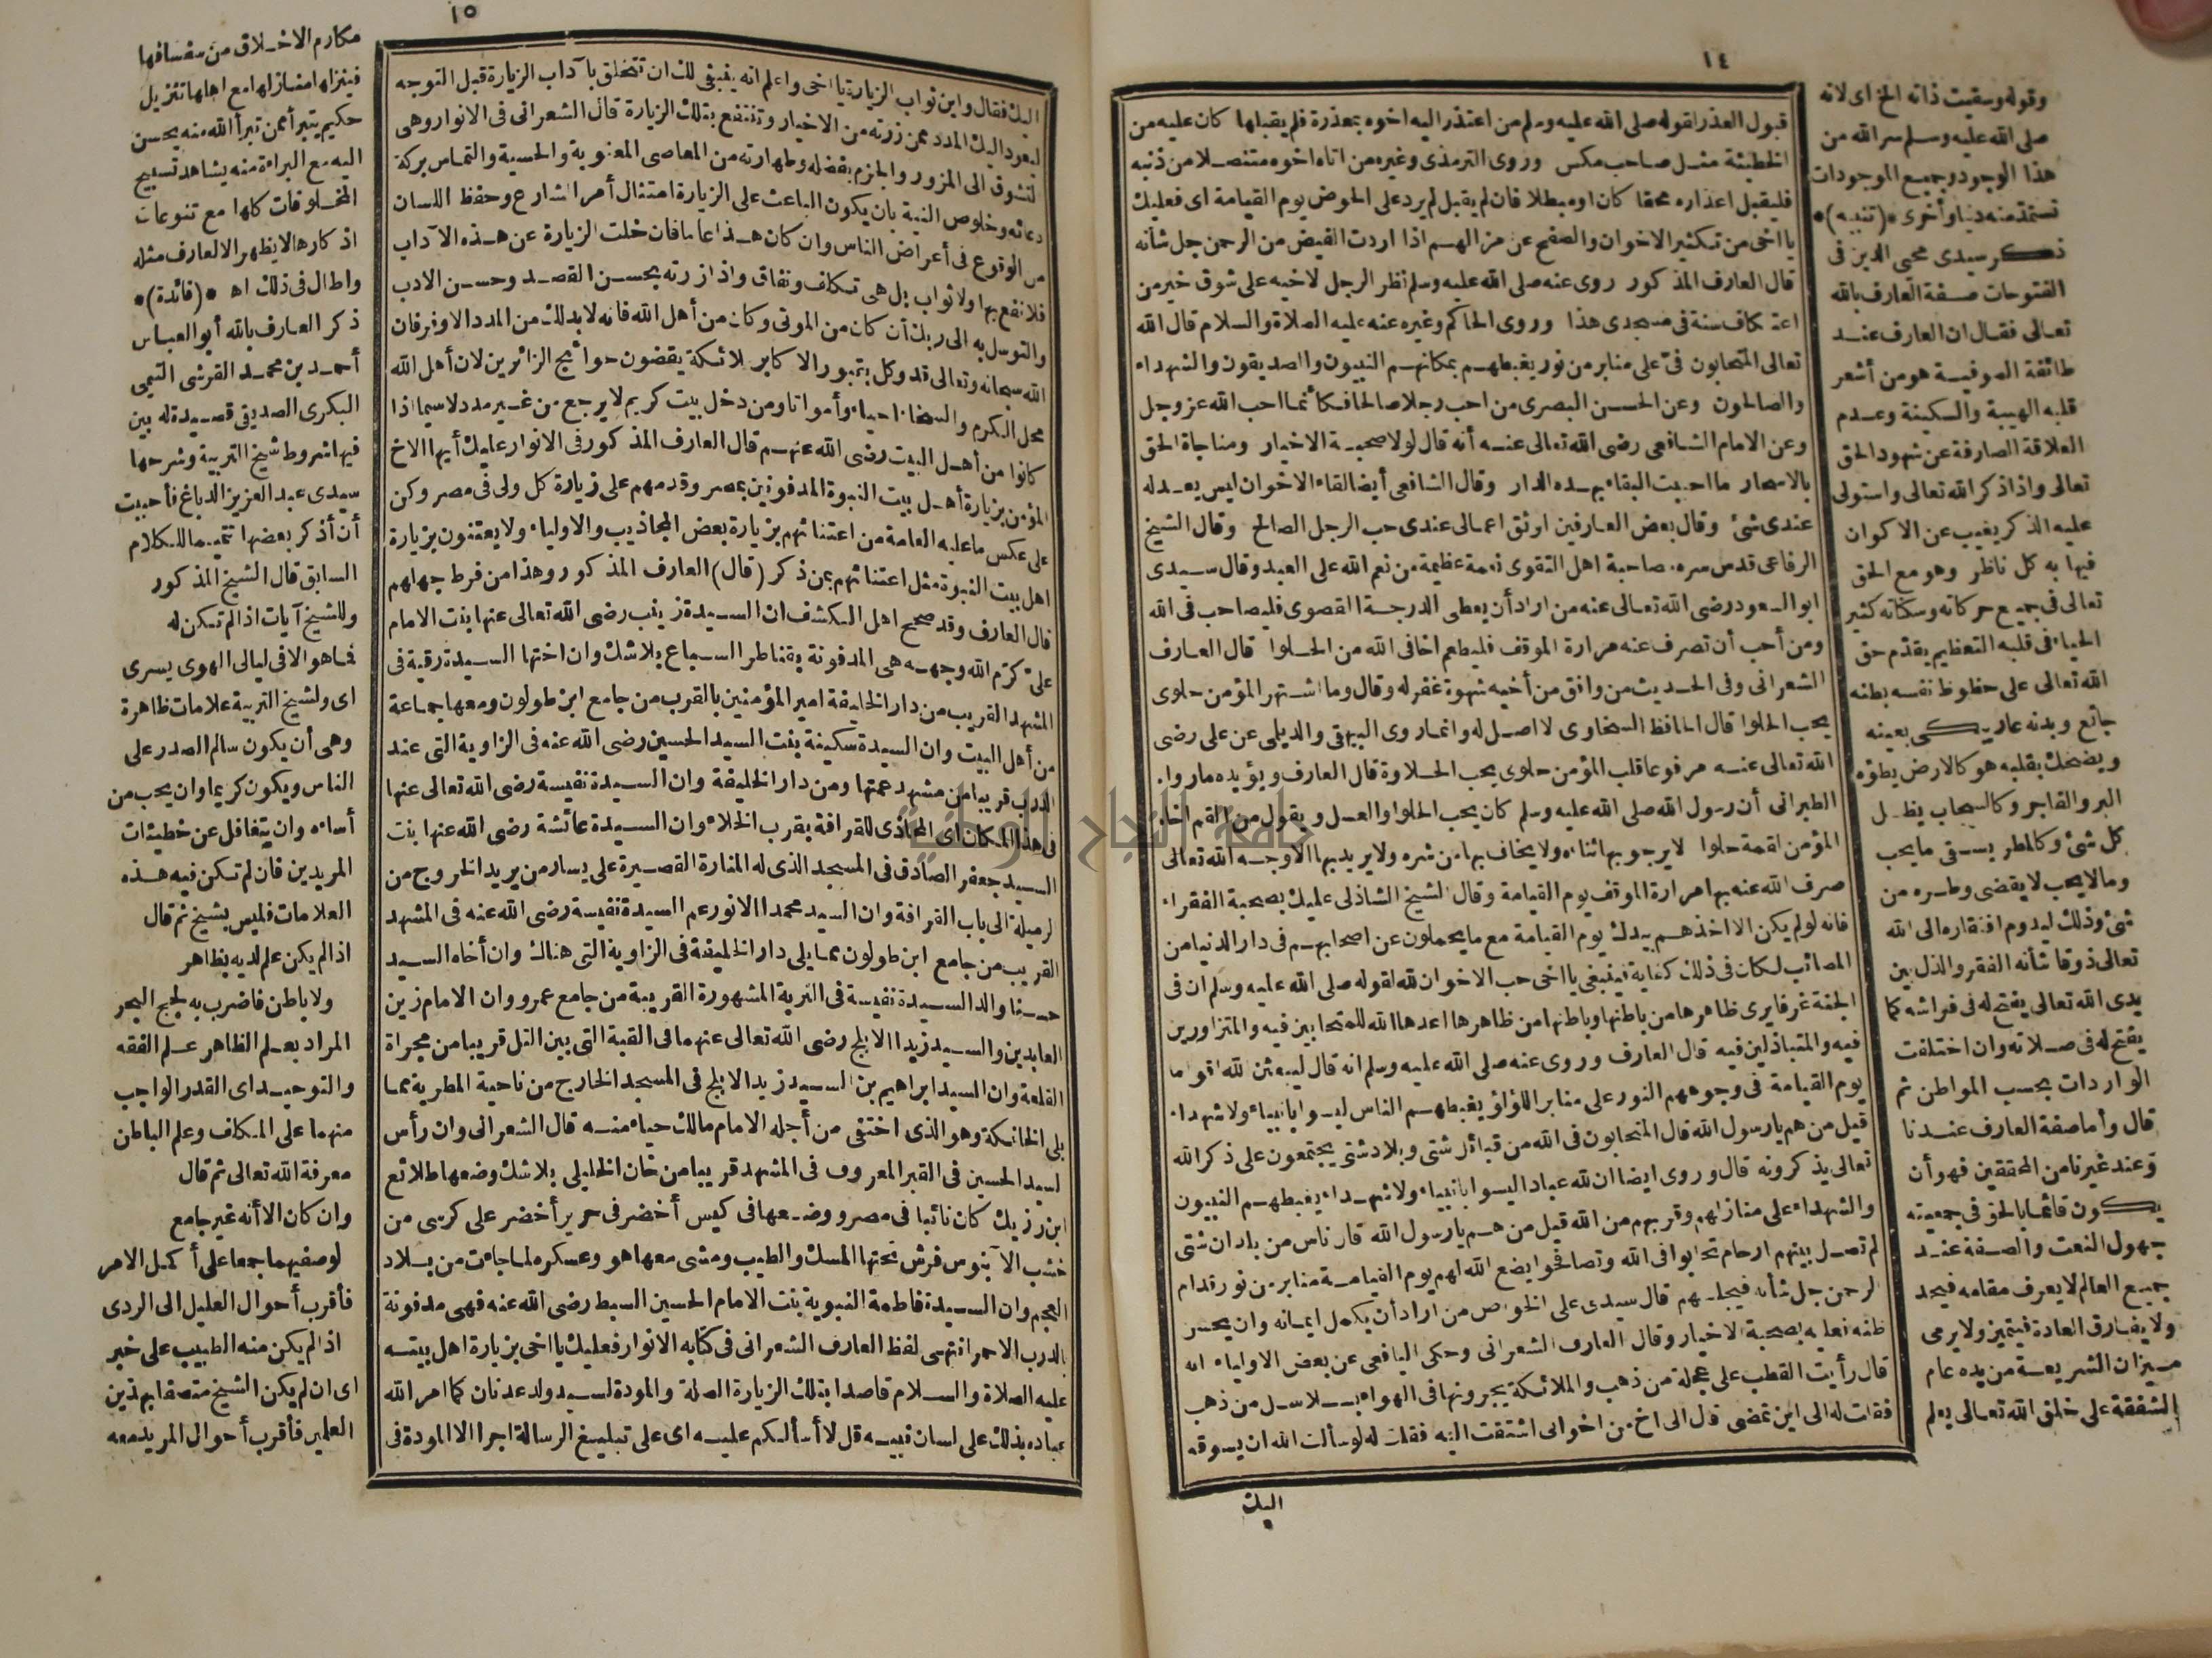 ١٤
قبول العذر لقوله صلى الله عليه وسلم من اعتذر اليه اخوه بمعذرة فلم يقبلها كان عليه من
الخطيئة مثل صاحب مكس وروى الترمذى وغيره من اتاه اخوه متنصلا من ذنبه
فليقبل اعذاره محقا كان او مبطلا فان لم يقبل لم يرد على الحوض يوم القيامة اى فعليك
يا اخى من تكثير الاخوان والصفح عن مزالهم اذا اردت الفيض من الرحمن جل شأنه
قال العارف المذكور روى عنه صلى الله عليه وسلم نظر الرجل لاخيه على شوق خير من
اعتكاف سنة فى مسجدى هذا وروى الحاكم وغيره عنه عليه الصلاة والسلام قال الله
تعالى المتحابون فىّ على منابر من نور يغبطهم بمكانهم النبيون والصديقون والشهداء
والصالحون وعن الحسن البصرى من احب رجلا صالحا فكأنما احب الله عز وجل
وعن الامام الشافعى رضى الله تعالى عنه أنه قال لولا صحبة الاخيار ومناجاة الحق
بالاسحار ما احببت البقاء بهذه الدار وقال الشافعى أيضا لقاء الاخوان ليس يعدله
عندى شئ وقال بعض العارفين اوثق اعمالى عندى حب الرجل الصالح وقال الشيخ
الرفاعى قدس سره صاحبة اهل التقوى نعمة عظيمة من نعم الله على العبد وقال سيدى
ابو السعود رضى الله تعالى عنه من اراد أن يعطى الدرجة القصوى فليصاحب فى الله
ومن أحب أن تصرف عنه مرارة الموقف فليطعم اخا فى الله من الحلوا قال العارف
الشعرانى وفى الحديث من وافق من أخيه شهوة غفر له وقال وما اشتهر المؤمن حلوى
يحب الحلوا قال الحافظ السخاوى لا اصل له وانما روى البيهقى والديلمى عن على رضى
الله تعالى عنه مرفوعا قلب المؤمن حلوى يحب الحلاوة قال العارف ويؤيده ما رواه
الطبرانى أن رسول الله صلى الله عليه وسلم كان يحب الحلوا والعسل ويقول من القم اخاه
المؤمن لقمة حلوا لا يرجو بها ثناءه ولا يخاف بها من شره ولا يريد بها الا وجه الله تعالى
صرف الله عنه بها مرارة الموقف يوم القيامة وقال الشيخ الشاذلى عليك بصحبة الفقراء
فانه لو لم يكن الا اخذهم بيدك يوم القيامة مع ما يحملون عن اصحابهم فى دار الدنيا من
المصائب لكان فى ذلك كفاية فينبغى يا اخى حب الاخوان لله لقوله صلى الله عليه وسلم ان فى
الجنة غرفا يرى ظاهرها من باطنها وباطنها من ظاهرها اعدها الله للمتحابين فيه والمتزاورين
فيه والمتباذلين فيه قال العارف وروى عنه صلى الله عليه وسلم انه قال ليبعثن الله اقواما
يوم القيامة فى وجوههم النور على منابر اللؤلؤ يغبطهم الناس ليسوا بانبياء ولا شهداء
قيل من هم يا رسول الله قال المتحابون فى الله من قبائل شتى وبلاد شتى يجتمعون على ذكر الله
تعالى يذكرونه قال وروى ايضا ان لله عبادا ليسوا بانبياء ولا شهداء يغبطهم النبيون
والشهداء على منازلهم وقربهم من الله قيل من هم يا رسول الله قال ناس من بلدان شتى
لم تصل بينهم ارحام تحابوا فى الله وتصافحوا يضع الله لهم يوم القيامة منابر من نور قدام
الرحمن جل شأنه فيجلسهم قال سيدى على الخواص من اراد أن يكمل ايمانه وان يحسن
ظنه فعليه بصحبة الاخيار وقال العارف الشعرانى وحكى اليافعى عن بعض الاولياء انه
قال رأيت القطب على عجلة من ذهب والملائكة يجرونها فى الهواء بسلاسل من ذهب
فقلت له الى اين تمضى قال الى اخ من اخوانى اشتقت اليه فقلت له لو سألت الله ان يسوقه
اليك
وقوله وسقيت ذاته الخ اى لانه
صلى الله عليه وسلم سر الله من
هذا الوجود وجميع الموجودات
تستمد منه دنيا وأخرى *(تنبيه)*
ذكر سيدى محيى الدين فى
الفتوحات صفة العارف بالله
تعالى فقال ان العارف عند
طائفة الصوفية هو من أشعر
قلبه الهيبة والسكينة وعدم
العلاقة الصارفة عن شهود الحق
تعالى واذا ذكر الله تعالى واستولى
عليه الذكر يغيب عن الاكوان
فيها به كل ناظر وهو مع الحق
تعالى فى جميع حركاته وسكناته كثير
الحياء فى قلبه التعظيم يقدّم حق
الله تعالى على حظوظ نفسه بطنه
جائع وبدنه عار يبكى بعينه
ويضحك بقلبه هو كالارض يطؤه
البر والفاجر وكالسحاب يظل
كل شئ وكالمطر يسقى ما يحب
وما لا يحب لا يقضى وطره من
شئ وذلك ليدوم افتقاره الى الله
تعالى ذوقا شأنه الفقر والذل بين
يدى الله تعالى يفتح له فى فراشه كما
يفتح له فى صلاته وان اختلفت
الواردات بحسب المواطن ثم
قال وأما صفة العارف عندنا
وعند غيرنا من المحققين فهو أن
يكون قائما بالحق فى جمعيته
مجهول النعت والصفة عند
جميع العالم لا يعرف مقامه فيحد
ولا يفارق العادة فيتميز ولا يرمى
ميزان الشريعة من يده عام
الشفقة على خلق الله تعالى يعلم
١٥
اليك فقال واين ثواب الزيارة يا اخى واعلم انه ينبغى لك ان تتخلق بآداب الزيارة قبل التوجه
ليعود اليك المدد ممن زرته من الاخيار وتنتفع بتلك الزيارة قال الشعرانى فى الانوار وهى
التشوق الى المزور والجزم بفضله وطهارته من المعاصى المعنوية والحسية والتماس بركة
دعائه وخلوص النية بان يكون الباعث على الزيارة امتثال أمر الشارع وحفظ اللسان
من الوقوع فى أعراض الناس وان كان هذا عاما فان خلت الزيارة عن هذه الآداب
فلا نفع بها ولا ثواب بل هى تكلف ونفاق واذا زرته بحسن القصد وحسن الادب
والتوسل به الى ربك أن كان من الموتى وكان من أهل الله فانه لا بد لك من المدد الاوفر فان
الله سبحانه وتعالى قد وكل بقبور الاكابر ملائكة يقضون حوائج الزائرين لان أهل الله
محل الكرم والسخاء احياء وأمواتا ومن دخل بيت كريم لا يرجع من غير مدد لا سيما اذا
كانوا من أهل البيت رضى الله عنهم قال العارف المذكور فى الانوار عليك أيها الاخ
المؤمن بزيارة أهل بيت النبوة المدفونين بمصر وقدمهم على زيارة كل ولى فى مصر وكن
على عكس ما عليه العامة من اعتنائهم بزيارة بعض المجاذيب والاولياء ولا يعتنون بزيارة
اهل بيت النبوة مثل اعتنائهم بمن ذكر (قال) العارف المذكور وهذا من فرط جهلهم
قال العارف وقد صحح اهل الكشف ان السيدة زينب رضى الله تعالى عنها بنت الامام
على كرّم الله وجهه هى المدفونة بقناطر السباع بلا شك وان اختها السيدة رقية فى
المشهد القريب من دار الخليفة امير المؤمنين بالقرب من جامع ابن طولون ومعها جماعة
من أهل البيت وان السيدة سكينة بنت السيد الحسين رضى الله عنه فى الزاوية التى عند
الدرب قريبا من مشهد عمتها ومن دار الخليفة وان السيدة نفيسة رضى الله تعالى عنها
فى هذا المكان اى المحاذى للقرافة بقرب الخلاء وان السيدة عائشة رضى الله عنها بنت
السيد جعفر الصادق فى المسجد الذى له المنارة القصيرة على يسار من يريد الخروج من
الرميلة الى باب القرافة وان السيد محمدا الانور عم السيدة نفيسة رضى الله عنه فى المشهد
القريب من جامع ابن طولون مما يلى دار الخليفة فى الزاوية التى هناك وان أخاه السيد
حسنا والد السيدة نفيسة فى التربة المشهورة القريبة من جامع عمرو وان الامام زين
العابدين والسيد زيدا الابلج رضى الله تعالى عنهما فى القبة التى بين التل قريبا من مجراة
القلعة وان السيد ابراهيم بن السيد زيد الابلج فى المسجد الخارج من ناحية المطرية مما
يلى الخانكة وهو الذى اختفى من أجله الامام مالك حياء منه قال الشعرانى وان رأس
السيد الحسين فى القبر المعروف فى المشهد قريبا من خان الخليلى بلا شك وضعها طلائع
ابن رزيك كان نائبا فى مصر ووضعها فى كيس أخضر فى حرير أخضر على كرسى من
خشب الآبنوس فرش تحتها المسك والطيب ومشى معها هو وعسكره لما جاءت من بلاد
العجم وان السيدة فاطمة النبوية بنت الامام الحسين السبط رضى الله عنه فهى مدفونة
بالدرب الاحمر انتهى لفظ العارف الشعرانى فى كتابه الانوار فعليك يا اخى بزيارة اهل بيته
عليه الصلاة والسلام قاصدا بتلك الزيارة الصلة والمودة لسيد ولد عدنان كما امر الله
عباده بذلك على لسان نبيه قل لا أسألكم عليه اى على تبليغ الرسالة اجرا الا المودة فى
مكارم الاخلاق من سفسافها
فينزلها منازلها مع اهلها تنزيل
حكيم يتبرأ ممن تبرأ الله منه يحسن
اليه مع البراءة منه يشاهد تسبيح
المخلوقات كلها مع تنوعات
اذكارها لا يظهر الا لعارف مثله
واطال فى ذلك اه *(فائدة)*
ذكر العارف بالله أبو العباس
أحمد بن محمد القرشى التيمى
البكرى الصديقى قصيدة له بين
فيها شروط شيخ التربية وشرحها
سيدى عبد العزيز الدباغ فأحببت
أن أذكر بعضها تتميما للكلام
السابق قال الشيخ المذكور
وللشيخ آيات اذا لم تكن له
فما هو الا فى ليالى الهوى يسرى
اى ولشيخ التربية علامات ظاهرة
وهى أن يكون سالم الصدر على
الناس ويكون كريما وان يحب من
أساءه وان يتغافل عن خطيئات
المريدين فان لم تكن فيه هذه
العلامات فليس بشيخ ثم قال
اذا لم يكن علم لديه بظاهر
ولا باطن فاضرب به لجج البحر
المراد بعلم الظاهر علم الفقه
والتوحيد اى القدر الواجب
منهما على المكلف وعلم الباطن
معرفة الله تعالى ثم قال
وان كان الا أنه غير جامع
لوصفيهما جمعا على أكمل الامر
فأقرب أحوال العليل الى الردى
اذا لم يكن منه الطبيب على خبر
اى ان لم يكن الشيخ متصفا بهذين
العلمين فأقرب أحوال المريد معه
جامعة النجاح الوطنية